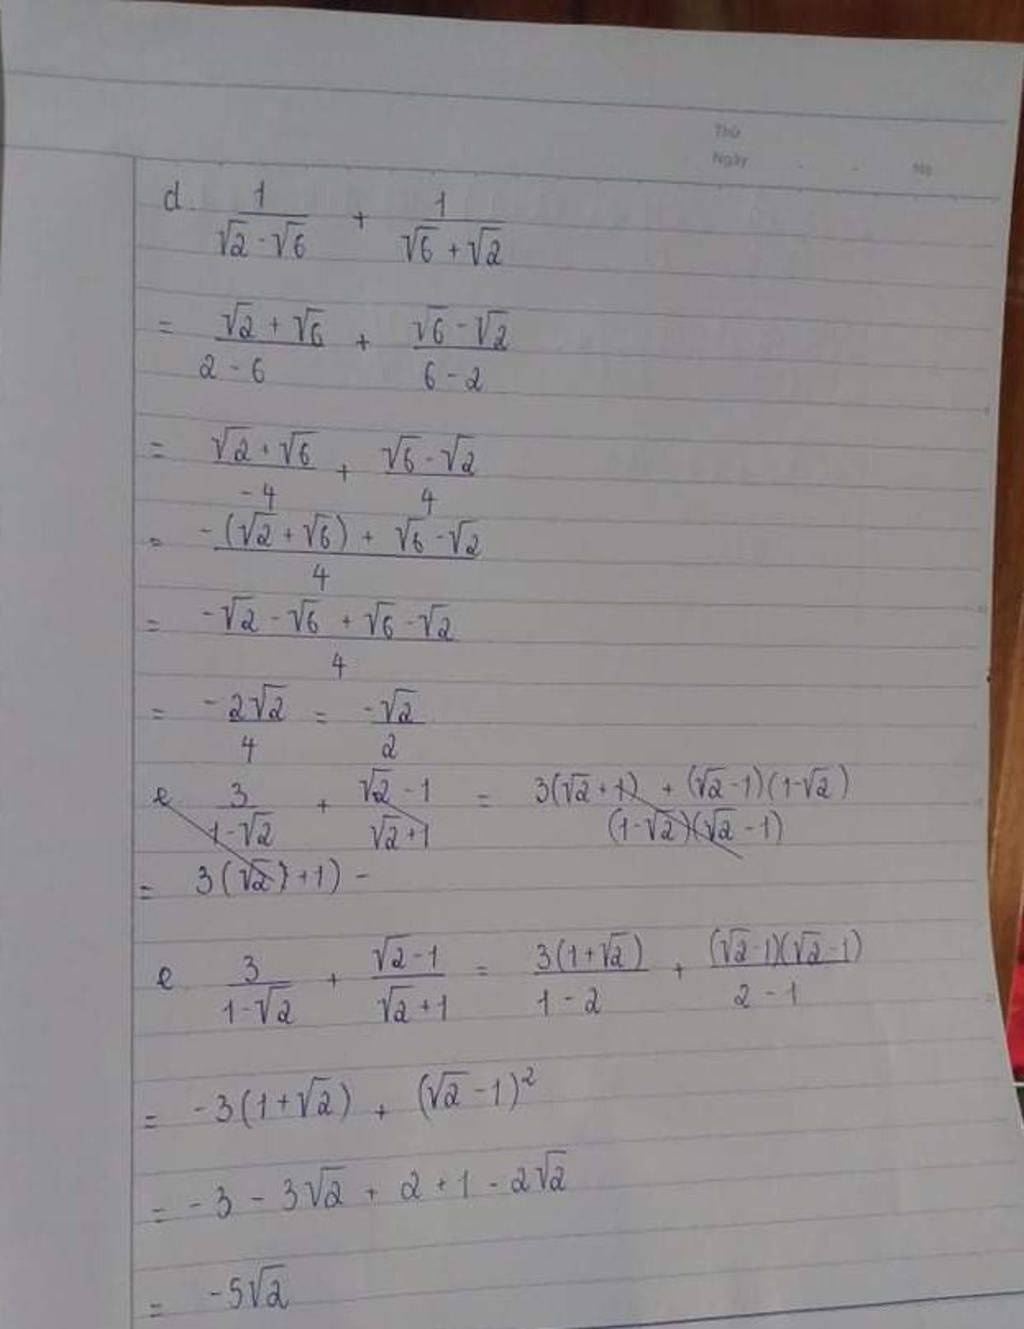 Thứ
Ngày . . No
d. \frac{1}{\sqrt{2} - \sqrt{6}} + \frac{1}{\sqrt{6} + \sqrt{2}}
= \frac{\sqrt{2} + \sqrt{6}}{2 - 6} + \frac{\sqrt{6} - \sqrt{2}}{6 - 2}
= \frac{\sqrt{2} + \sqrt{6}}{-4} + \frac{\sqrt{6} - \sqrt{2}}{4}
= \frac{-(\sqrt{2} + \sqrt{6}) + \sqrt{6} - \sqrt{2}}{4}
= \frac{-\sqrt{2} - \sqrt{6} + \sqrt{6} - \sqrt{2}}{4}
= \frac{-2\sqrt{2}}{4} = \frac{-\sqrt{2}}{2}
e \frac{3}{1 - \sqrt{2}} + \frac{\sqrt{2} - 1}{\sqrt{2} + 1} = \frac{3(\sqrt{2} + 1) + (\sqrt{2} - 1)(1 - \sqrt{2})}{(1 - \sqrt{2})(\sqrt{2} - 1)}
= 3(\sqrt{2}) + 1) -
e \frac{3}{1 - \sqrt{2}} + \frac{\sqrt{2} - 1}{\sqrt{2} + 1} = \frac{3(1 + \sqrt{2})}{1 - 2} + \frac{(\sqrt{2} - 1)(\sqrt{2} - 1)}{2 - 1}
= -3(1 + \sqrt{2}) + (\sqrt{2} - 1)^2
= -3 - 3\sqrt{2} + 2 + 1 - 2\sqrt{2}
= -5\sqrt{2}